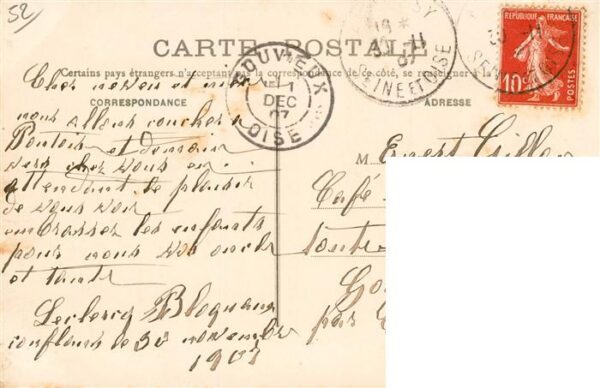 52
CARTE POSTALE
Certains pays étrangers n'acceptant pas la correspondance de ce côté, se renseigner à la
CORRESPONDANCE
ADRESSE
GOUVIEUX
1
DEC
07
OISE
SEINE ET OISE
RÉPUBLIQUE FRANÇAISE
10c
POSTES
Cher neveu et nièce
nous allons coucher a
Pontois et demain
vers chez vous en
attendant le plaisir
de vous voir
embrassez les enfants
pour nous vos oncle
et tante
Leclercq
conflans le 30 novembre
1907
M Ernest
Café